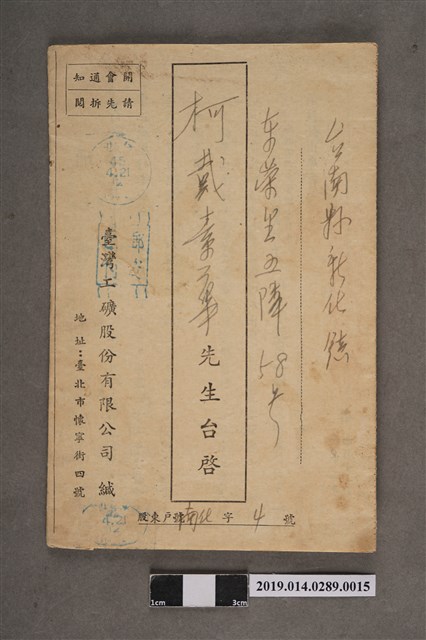 開會通知
請先拆閱
台南縣新化鎮
東榮里五鄰58号
柯戴
先生台啓
臺灣工礦股份有限公司緘
地址：臺北市懷寧街四號
股東戶號南化字4號
45
4.21
1cm
3cm
2019.014.0289.0015